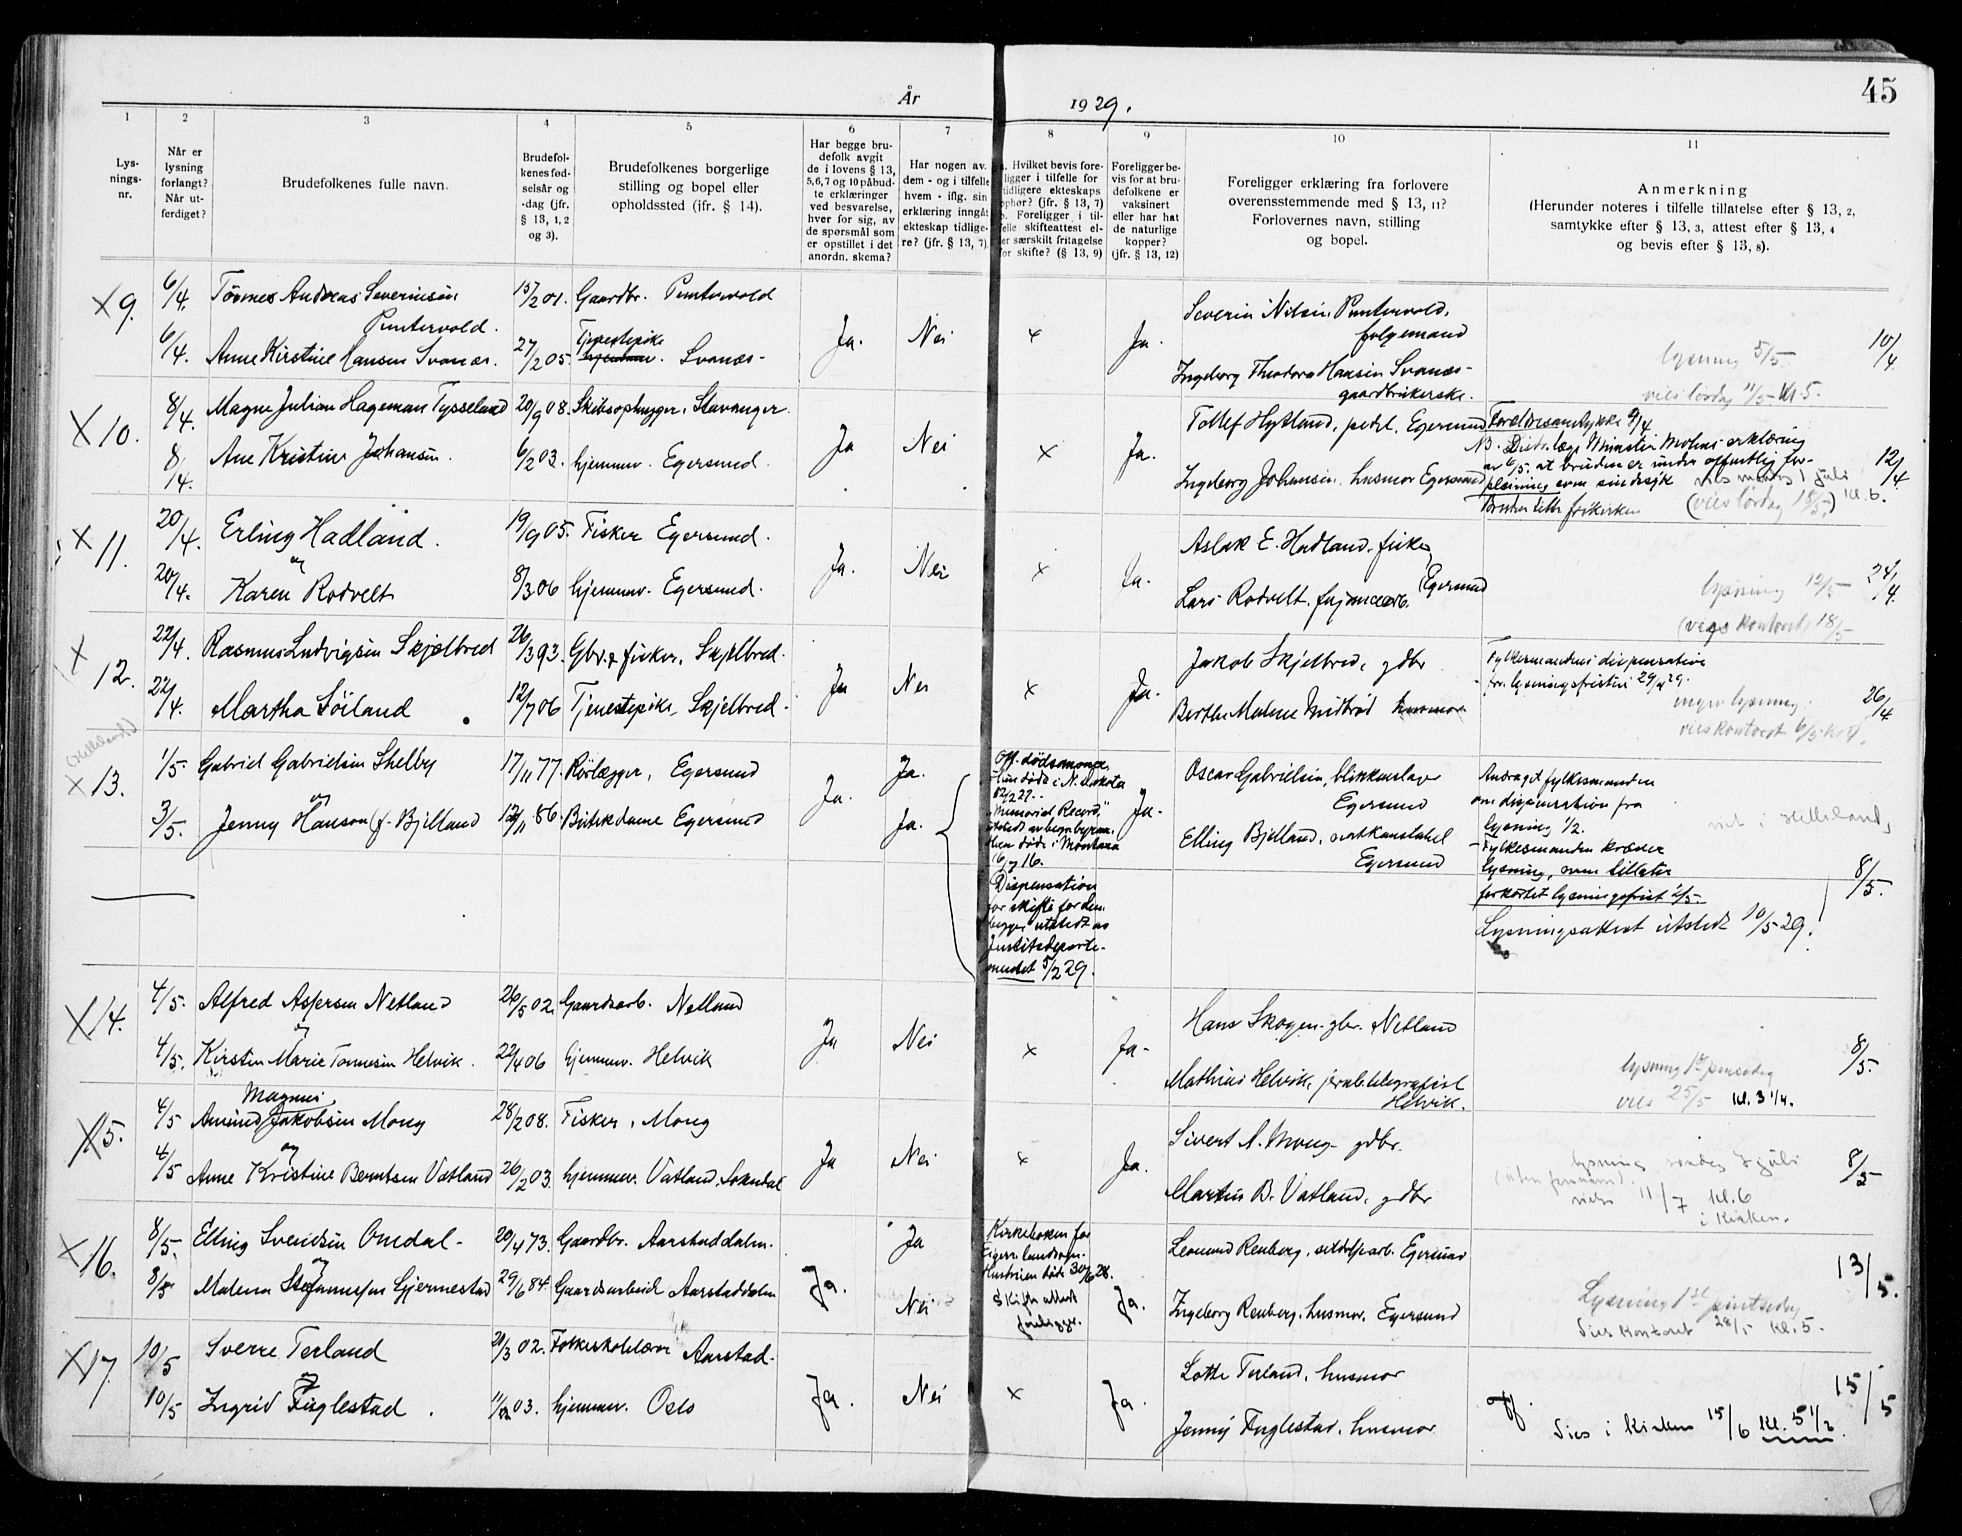 45
År 1929.
1
2
3
4
5
6
7
8
9
10
11
Lys-
nings-
nr.
Når er
lysning
forlangt?
Når ut-
ferdiget?
Brudefolkenes fulle navn.
Brudefol-
kenes fød-
selsår og
-dag (jfr.
§ 13, 1, 2
og 3).
Brudefolkenes borgerlige
stilling og bopel eller
opholdssted (ifr. § 14).
Har begge bru-
defolk avgit
de i lovens § 13,
5,6,7 og 10 påbud-
te erklæringer
ved besvarelse,
hver for sig, av
de spørsmål som
er opstillet i det
anordn. skema?
Har nogen av
dem - og i tilfelle
hvem - iflg. sin
erklæring inngåt
ekteskap tidlige-
re? (jfr. § 13, 7)
Hvilket bevis fore-
ligger i tilfelle for
tidligere ekteskaps
ophør? (jfr. § 13, 7)
Foreligger i til-
felle skifteattest el-
ler særskilt fritagelse
for skifte? (§ 13, 9)
Foreligger be-
vis for at bru-
defolkene er
vaksinert
eller har hat
de naturlige
kopper?
(jfr. § 13, 12)
Foreligger erklæring fra forlovere
overensstemmende med § 13, 11?
Forlovernes navn, stilling
og bopel.
Anmerkning
(Herunder noteres i tilfelle tillatelse efter § 13, 2,
samtykke efter § 13, 3, attest efter § 13, 4
og bevis efter § 13, 8).
x 9. 6/4. Tønnes Andreas Severinsen 15/2 01. Gaardbr. Puntervold Severin Nilsen Puntervold,
Puntervold. Ja. Nei x Ja. folgemand 10/4
6/4. Anne Kirstine Hansen Svanæs. 27/2 05. Tjenestepike Svanæs- Ingeborg Theodora Hansen Svanæs-
gaardbrukerske.
lysning 5/5.
vies lørdag 11/5 kl 5.
x 10. 8/4. Magne Julian Hageman Tysseland 20/9 08. Skibsophugger, Stavanger. Ja Nei x Ja. Tollef Hytland, Egersund Foreldresamtykke 9/4
8/4. Ane Kristine Johansen. 6/2 03. hjemmev. Egersund. Ingeborg Johansen, husmor Egersund 12/4
av 6/5. at bruden er under offentlig for-
pleining som sindssyk vies mandag 1 juli
(vies lørdag 18/5) kl. 6.
x 11. 20/4. Erling Hadland. 19/9 05. Fisker Egersund. Ja. Nei x Ja. Aslak E. Hadland, fisker,
og
20/4. Karen Rodvelt 8/3 06 hjemmev. Egersund. Lars Rodvelt, Egersund 24/4.
lysning 12/5
(vies kontoret) 18/5
x 12. 22/4. Rasmus Ludvigsen Skjelbred 26/3 93. Gbr. & fisker, Skjelbred. Ja Nei x Ja. Jakob Skjelbred, gdbr Fylkesmandens dispensation
for lysningsfristen 29/4 29.
22/4. Martha Soiland 12/7 06 Tjenestepike, Skjelbred. Berthe Malene Midbrød husmor 26/4
ingen lysning.
vies kontoret 6/5 kl 4.
x 13. 1/5. Gabriel Gabrielsen Shelby 17/11 77. Rørlægger, Egersund Ja. Ja. Oscar Gabrielsen, blikkenslager
Egersund
og
3/5. Jenny Hanson (f. Bjelland 12/11 86. Butikdame Egersund Ja. Ja. Elling Bjelland,
Egersund
Off. dødsanmon.
Hun døde i N. Dakota
"Memorial Record"
Han døde i Montana
Dispensation
for skifte for dem
begge utstedt av
Justitsdeparte-
mentet 5/2 29.
Andraget fylkesmanden
om dispensation fra
lysning 1/2.
- Fylkesmanden kræver
lysning, men tillater
forkortet lysningsfrist 2/5.
Lysningsattest utstedt 10/5 29.
viet i Helleland,
8/5.
x 14. 4/5. Alfred Aspersen Netland 26/5 02. Gaardsarb. Netland Ja Nei x Ja- Hans Skogen. gbr. Netland
og
4/5. Kirsten Marie Tonnesen Helvik. 22/4 06 hjemmev. Helvik Mathias Helvik, jernb.telegrafist
Helvik.
lysning 1ste pinsedag
vies 25/5 kl. 3 1/4.
8/5.
x 15. 4/5 Amund Magnus Jakobsen Mong 28/2 08. Fisker, Mong Ja Nei x Ja. Sivert A. Mong- gdbr.
og
4/5 Anne Kristine Berntsen Vatland 26/2 03. hjemmev. Vatland, Sokndal Martin B. Vatland, gdbr
lysning søndag 7 juli
vies 11/7 kl. 6
i kirken.
8/5
x 16. 8/5. Elling Svendsen Omdal- 20/4 73. Gaardbr. Aarstaddalen. Ja. Ja Leonard Renberg, Egersund
og
8/5 Malena Stefannsen Gjermestad 29/6 84. Gaardsarbeid Aarstaddalen Nei Ja. Ingeborg Renberg, husmor, Egersund
Kirkeboken for
Egers. landsogn.
Hustruen døde 30/6 28.
Skifteattest
foreligger.
Lysning 1ste pintsedag
Vies kontoret 28/5 kl. 5.
13/5.
x 17 10/5 Sverre Terland 21/3 02. Folkeskolelærer Aarstad. Ja. Nei x Ja. Lotte Terland, husmor
og
10/5 Ingrid Fuglestad. hjemmev. Oslo Jenny Fuglestad, husmor
Vies i kirken 15/6 kl. 5 1/2.
15/5